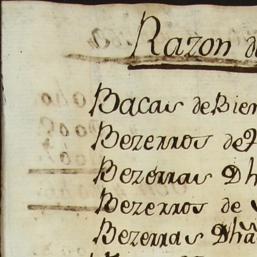 Razon d
Bacas de Bien
Bezerros de
Bezerras Dh
Bezerros de
Bezerras Dhã